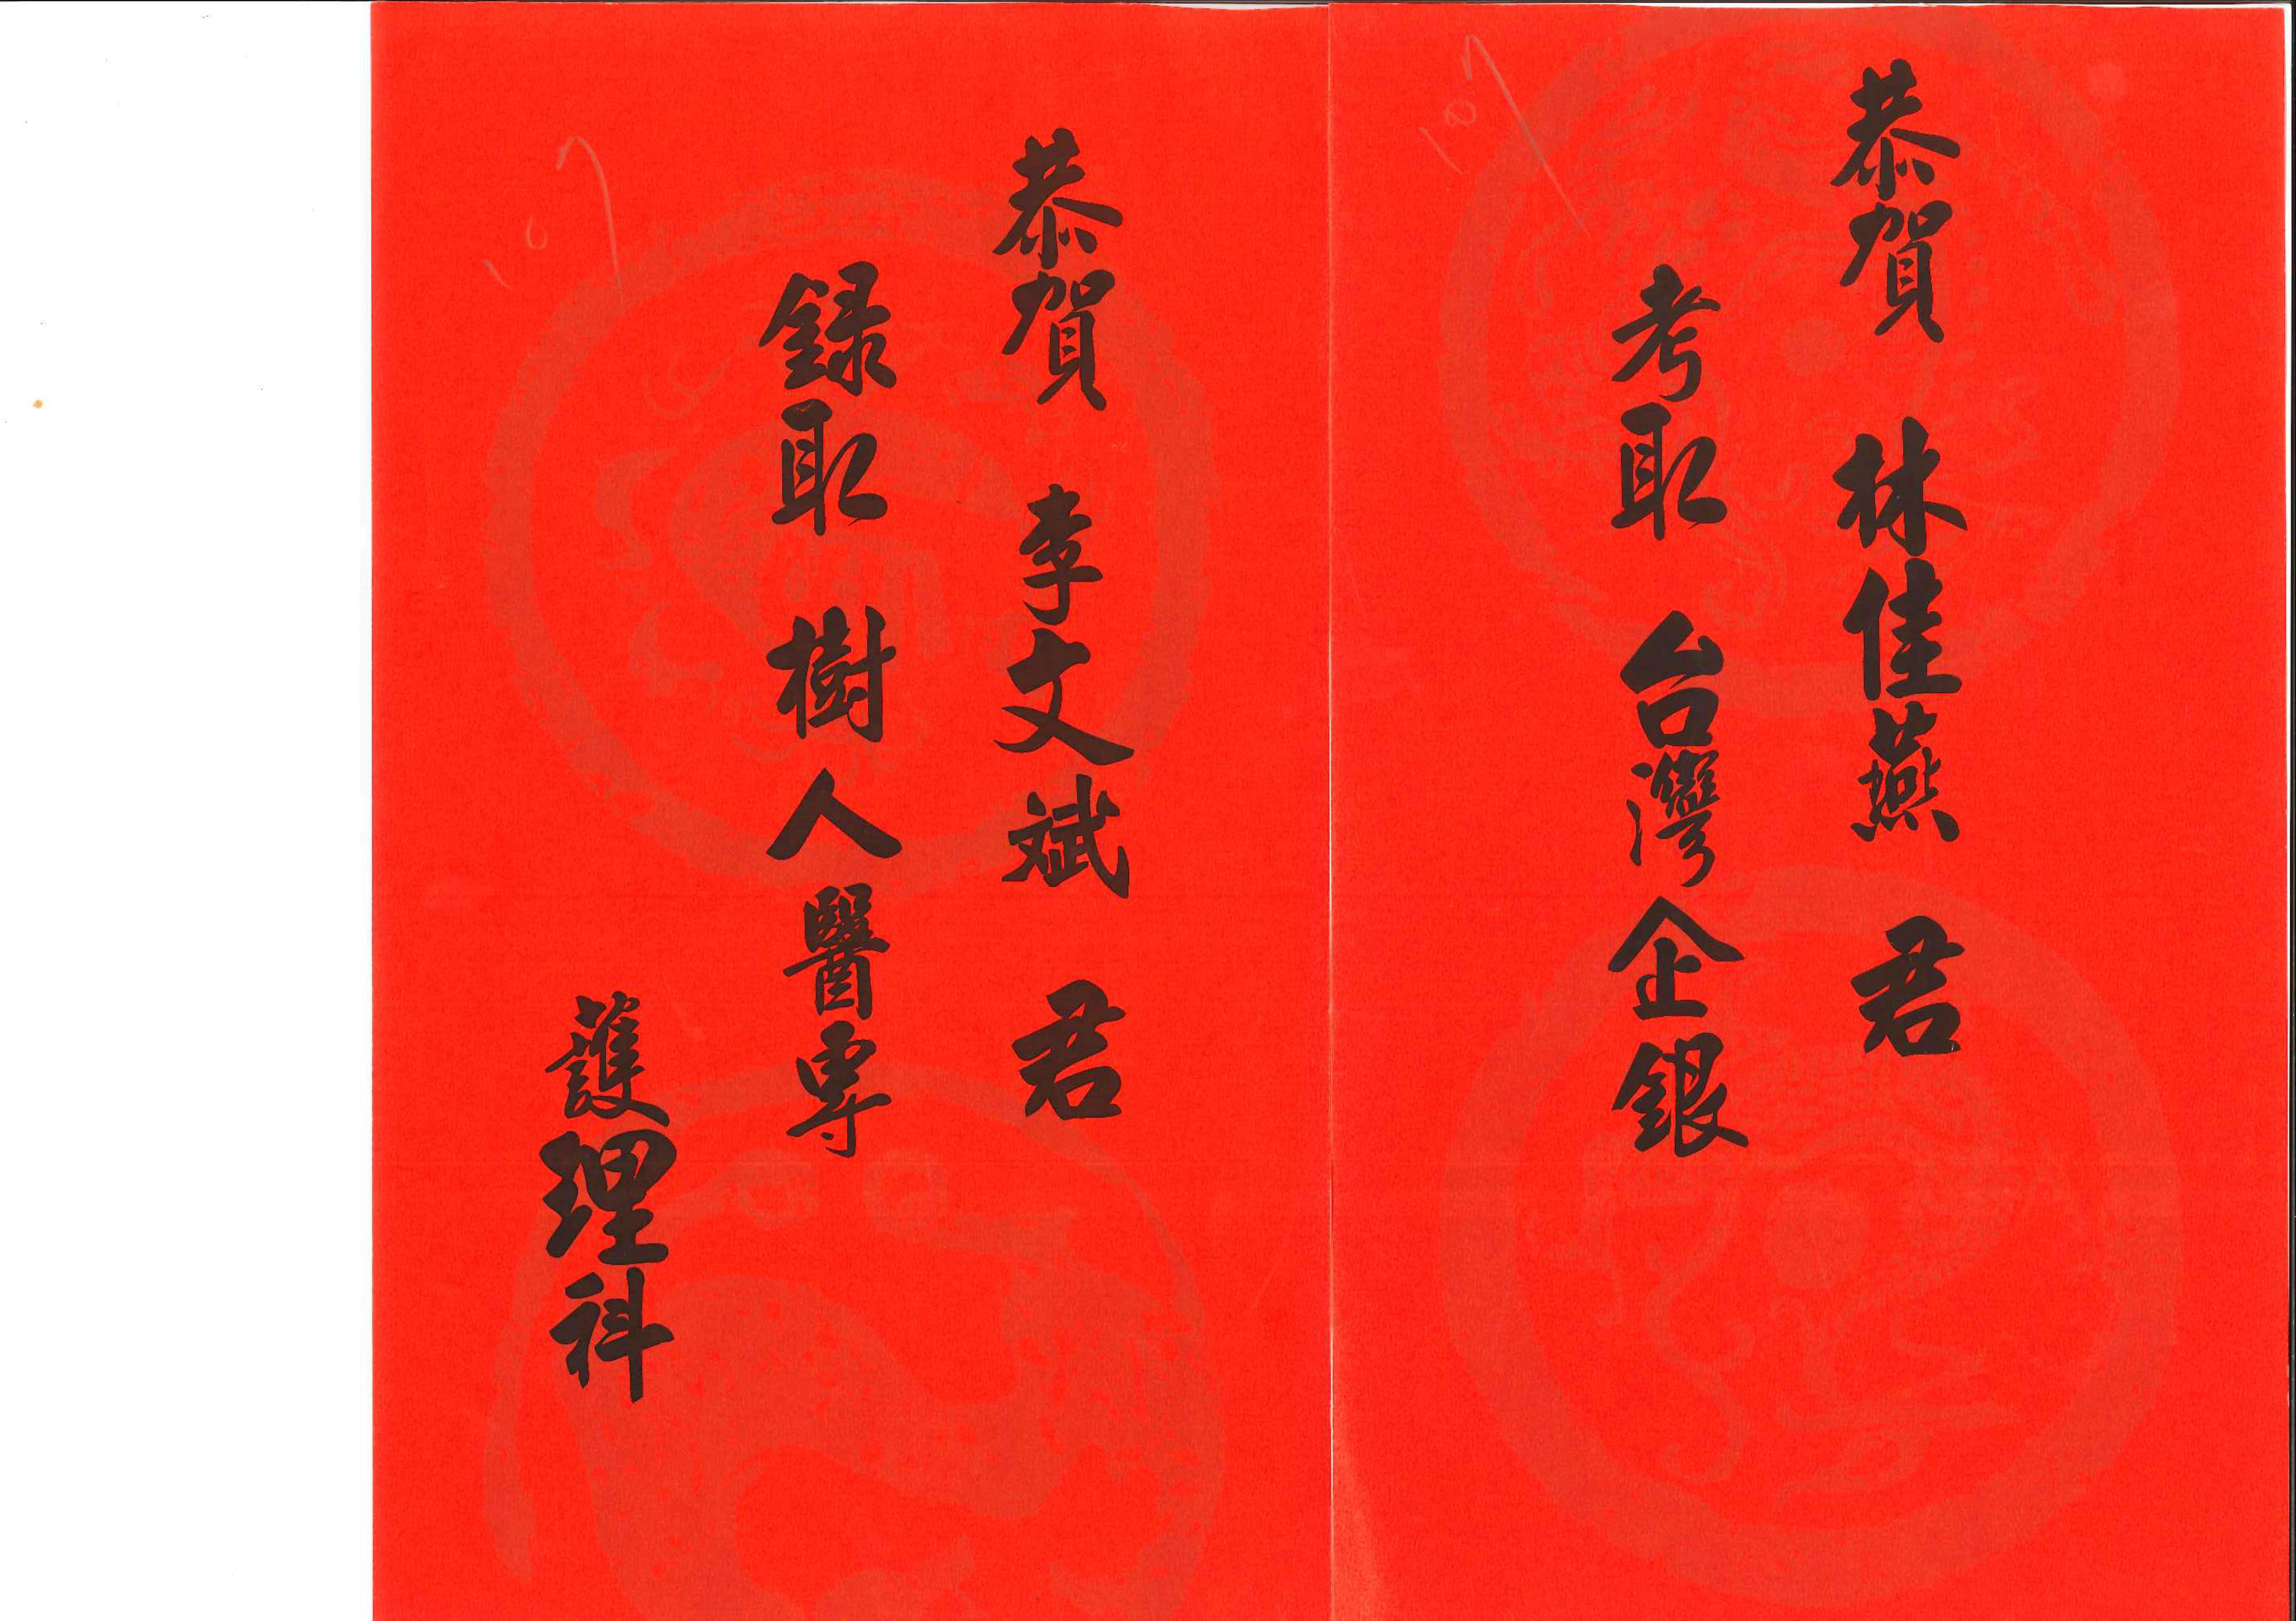 107
恭賀 林佳燕 君
考取 台灣企銀
107
恭賀 李文斌 君
録取 樹人醫専
護理科